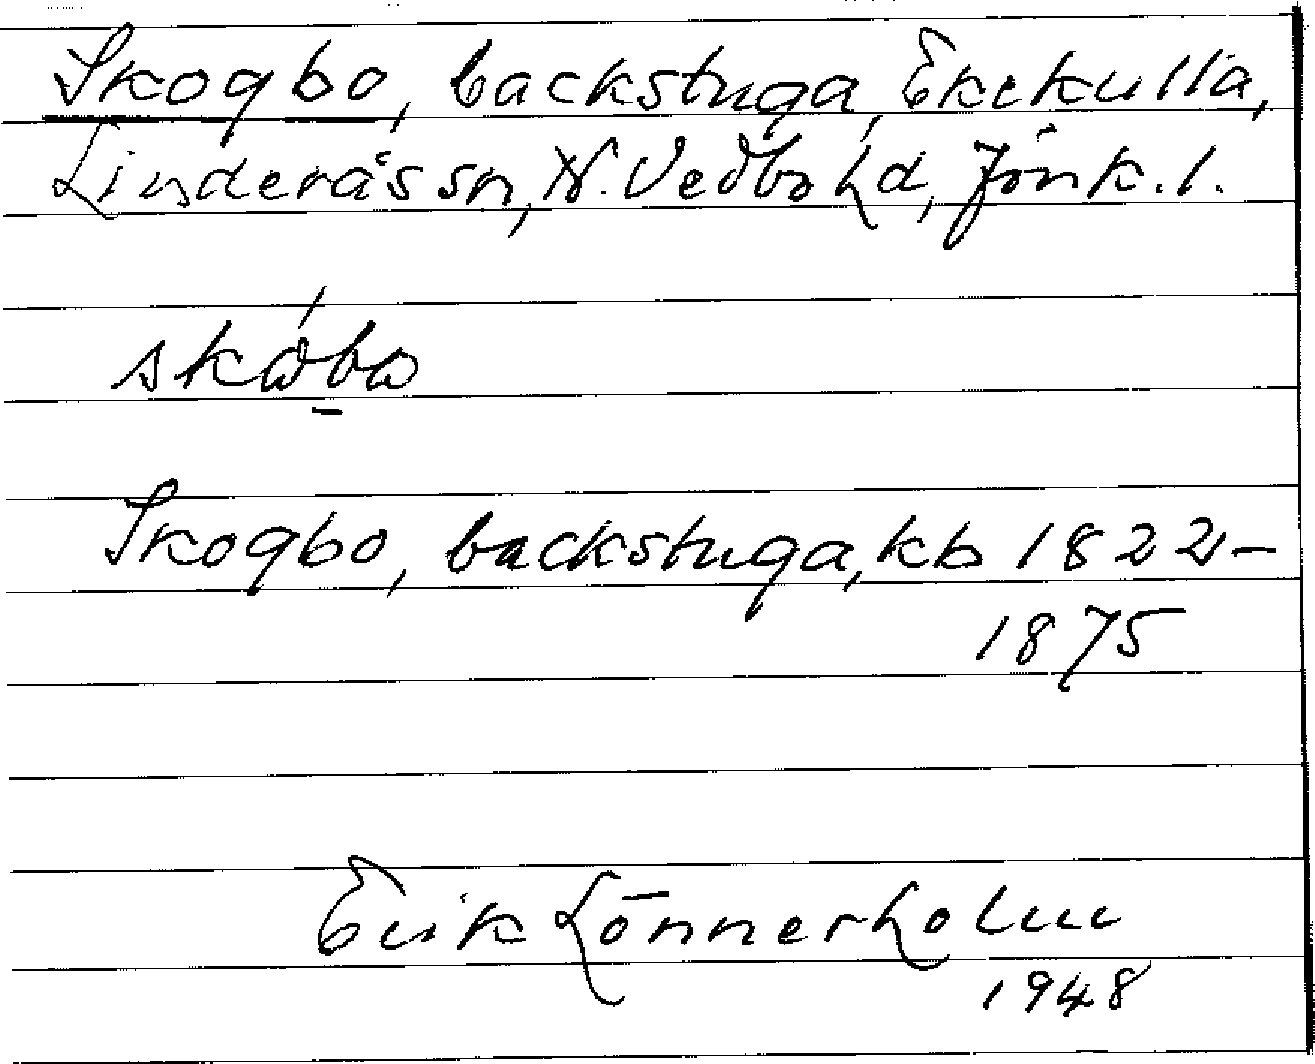 Skogbo, backstuga, Ekekulla,
Linderås sn, N. Vedbo hd, Jönk. l.
Skogbo, backstuga, kb 1822-
1875
Erik Lönnerholm
1948